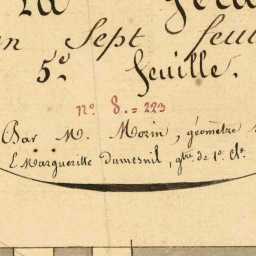 en Sept feui
5.e feuille.
n.o 8. = 223
Par M. Morin, géomètre
E Marguerille Dumesnil, g.tre de 1.e cl.e